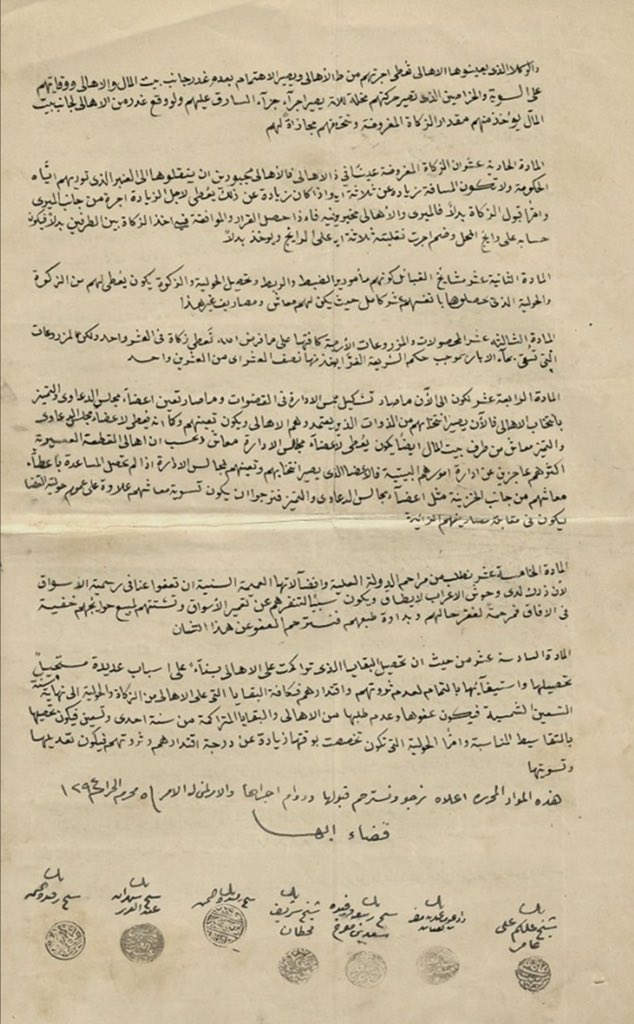 والوكلا الذى يعينوها الاهالى تعطى اجرتهم من طرف الأهالى ويصير الاهتمام بعدم غدر جانب بيت المال والاهالى ووقايتهم
على السوية والخراصين الذى تصير حركتهم مخلة للامة يصير اجرآء جزآء السارق عليهم ولو وقع غدر من الاهالى لجانب بيت
المال يؤخذ منهم مقدار الزكاة المفروضة وتخنهم مجازاة لهم
المادة الحادية عشر ان الزكاة المفروضة عيشًا فى ذ الاهالى فالأهالى مجبورين ان ينقلوها الى العنبر الذى توريهم اياه
الحكومة ولا تكون المسافة زيادة عن ثلاثة ايام واذا كان زيادة عن ذلك يعطى لاجل الزيادة اجرة من جانب الميرى
وامّا قبول الزكاة بدلاً فالميرى والأهالى مخيرون فيه فاذا حصل القرار والموافقة فى اخذ الزكاة بين الطرفين بدلاً فيكون
حسابه على رايج المحل وضم اجرت نقليته ثلاثة ايام على الرايج ويوخذ بدلاً
المادة الثانية عشر مشايخ القبائل كونهم مأمورين بالضبط والربط وتحصيل الحولية والزكوة يكون يعطى لهم من الزكوة
والحولية الذى حصلوها بانفسهم عشر كامل حيث يكن لهم معاش ومصاريف بغير هذا
المادة الثالثه عشر المحصولات والمزروعات الأرضية كافتها على ما فرض الله تعطى زكاة فى العشر واحد ولكن المزروعات
التى تسقى بماء الابار بموجب حكم الشريعة الغرّا يوخذ منها نصف العشر اى من العشرين واحد
المادة الرابعة عشر تكون الى الآن ما صار تشكيل مجلس الادارة فى القضوات وما صار تعيين اعضاء مجلس الدعاوى والتميز
بانتخاب الاهالى فالآن يصير انتخابهم من الذوات الذى يعتمدوهم الاهالى ويكون تعينهم وكما انه يعطى لاعضاء مجلس الدعاوى
والتميز معاش من طرف بيت المال ايضا يكون يعطى لأعضاء مجالس الادارة معاش وبحسب ان اهالى القطعة العسيرية
اكثرهم عاجزين عن ادارة امورهم البيتية فالاعضا الذى يصير انتخابهم وتعينهم لمجالس الادارة اذا لم تحصل المساعدة باعطاء
معاشهم من جانب الخزينة مثل اعضاء مجالس الدعاوى والتميز فنرجوا ان يكون تسوية معاشهم علاوة على عموم حولية القضا
ليكون فى مقابلة مصاريفهم الذاتية
المادة الخامسة عشر نطلب من مراحم الدولة العلية وافضالاتها العميمة السنية ان تعفوا عنا فى رسمية الاسواق
لأن ذلك لدى وحوش الاعراب لا يطاق ويكون سببًا لتنفرهم عن تعمير الأسواق وتشتتهم لبيع حوائجهم خفية
فى الافاق فمرحمةً لفقر حالهم وبداوة طبعهم فنسترحم العفو عن هذا الشان
المادة السادسة عشر من حيث ان تحصيل البقايا الذى تراكمت على الاهالى بناءً على اسباب عديدة مستحيل
تحصيلها واستيفائها بالتمام لعدم ثروتهم واقتدارهم فكافة البقايا التى على الاهالى من الزكاة والحولية الى نهاية سنة
التسعين الشمسية فيكون عفوها وعدم طلبها من الاهالى والبقايا المتراكمة من سنة احدى وتسعين فيكون تحصيلها
بالتقاسيط المناسبة وامّا الحولية التى تكون تخصصت بوقتها زيادة عن درجة اقتدارهم وثروتهم فيكون تعديلها
وتسويتها
هذه المواد المحرره اعلاه نرجو ونسترحم قبولها ودوام اجراها والامر لمن له الامر ٥ محرم الحرام ١٢٩٤
قضاء ابها
شيخ علكم على عامر
شيخ شريف قحطان